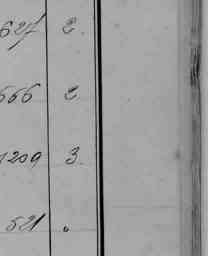 627 2.
666 2
1209 3.
521 .